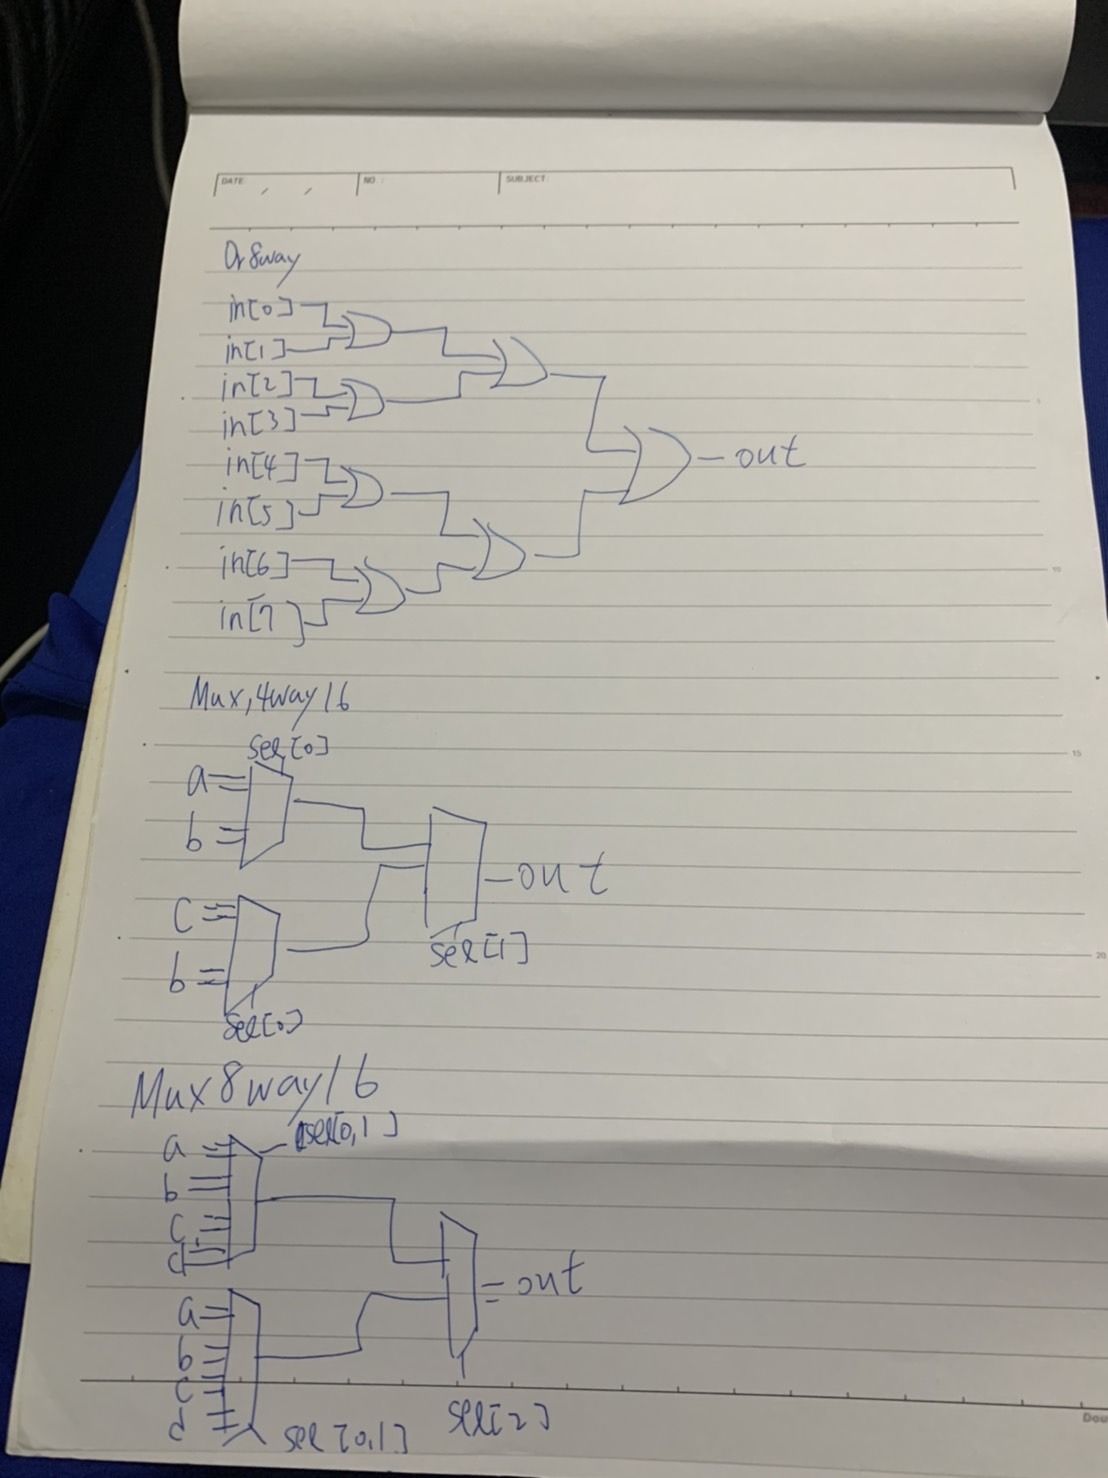 DATE / / NO.: SUBJECT:
Or8way
in[0]
in[1]
in[2]
in[3]
in[4]
in[5]
in[6]
in[7]
out
5
10
Mux,4way16
sel[0]
a
b
out
15
c
b
sel[1]
sel[0]
20
Mux8way16
sel[0,1]
a
b
c
d
out
a
b
c
d
sel[0,1]
sel[2]
Dou